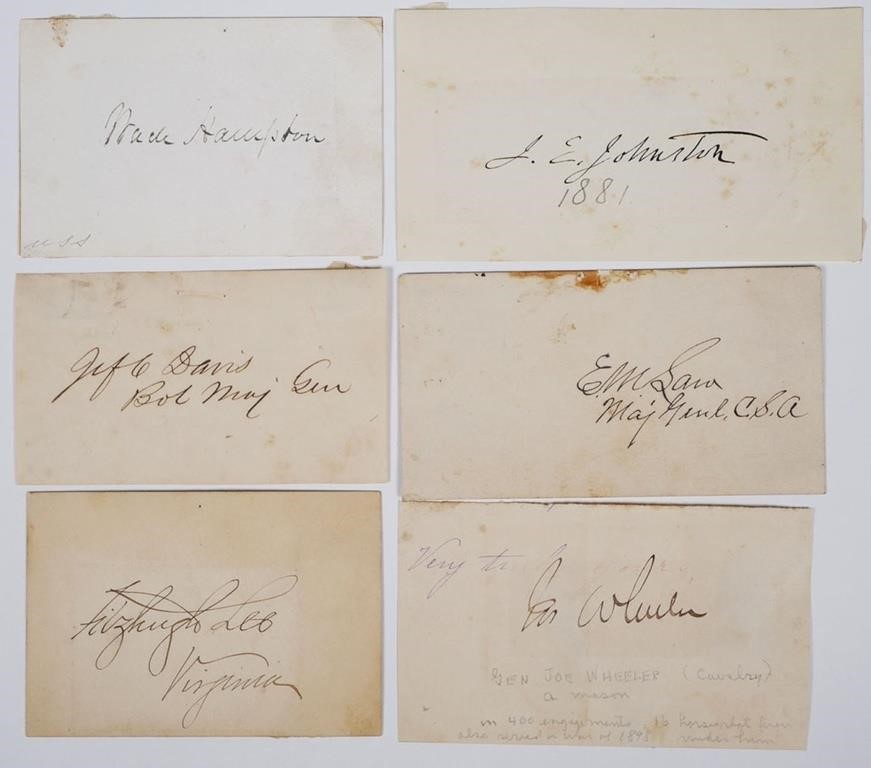 Wade Hampton
USS
J. E. Johnston
1881
Jef C Davis
Bvt Maj Gen
E. M. Law
Maj Genl. C.S.A
Fitzhugh Lee
Virginia
Very
Jos Wheeler
GEN JOE WHEELER (Cavalry)
a mason
in 400 engagements, 16 horses shot from
also served in war of 1898 under him